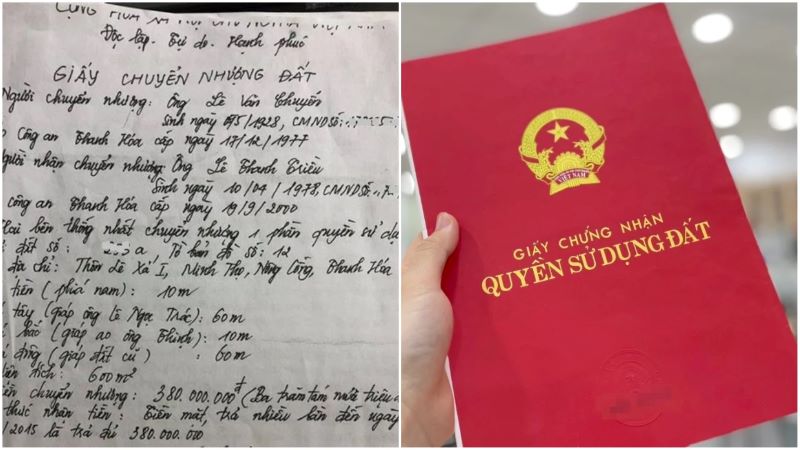 CỘNG HÒA XÃ HỘI CHỦ NGHĨA VIỆT NAM
Độc lập - Tự do - Hạnh phúc
GIẤY CHUYỂN NHƯỢNG ĐẤT
Người chuyển nhượng: Ông Lê Văn Chuyến
Sinh ngày /5/1928, CMND Số:
Công an Thanh Hóa cấp ngày 17/12/1977
người nhận chuyển nhượng Ông Lê Thanh Triều
Sinh ngày 10/04/1978, CMND Số:
công an Thanh Hóa cấp ngày 19/9/2000
Hai bên thống nhất chuyển nhượng 1 phần quyền sử dụ
đất số: a Tờ bản đồ số: 12
địa chỉ: Thôn Lê Xá I, Minh Thọ, Nông Cống, Thanh Hóa
tiền (phía nam): 10m
tây (giáp ông lê Ngọc Trác): 60m
bắc (giáp ao ông Thịnh): 10m
đông (giáp đất cũ): 60m
diện tích: 600m²
chuyển nhượng: 380.000.000đ (Ba trăm tám mươi triệu
thức nhận tiền: Tiền mặt, trả nhiều lần đến ngày
/2015 là trả đủ 380.000.000
VIỆT NAM
GIẤY CHỨNG NHẬN
QUYỀN SỬ DỤNG ĐẤT